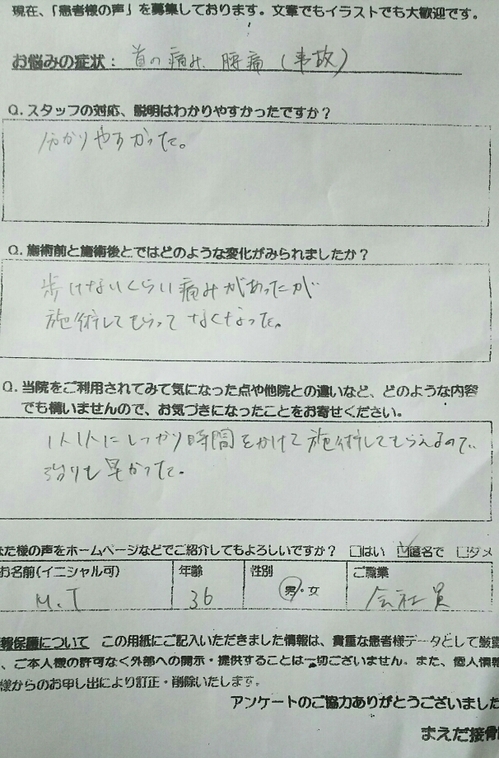 現在、「患者様の声」を募集しております。文章でもイラストでも大歓迎です。
お悩みの症状： 首の痛み 腰痛（事故）
Q.スタッフの対応、説明はわかりやすかったですか？
分かりやすかった。
Q.施術前と施術後とではどのような変化がみられましたか？
歩けないくらい痛みがあったが
施術してもらってなくなった。
Q.当院をご利用されてみて気になった点や他院との違いなど、どのような内容
でも構いませんので、お気づきになったことをお寄せください。
1人1人にしっかり時間をかけて施術してもらえるので、
治りも早かった。
なた様の声をホームページなどでご紹介してもよろしいですか？ □はい ☑匿名で □ダメ
お名前(イニシャル可) 年齢 性別 ご職業
M.T 36 男・女 会社員
報保護について この用紙にご記入いただきました情報は、貴重な患者様データとして厳
、ご本人様の許可なく外部への開示・提供することは一切ございません。また、個人情報
様からのお申し出により訂正・削除いたします。
アンケートのご協力ありがとうございました
まえだ接骨